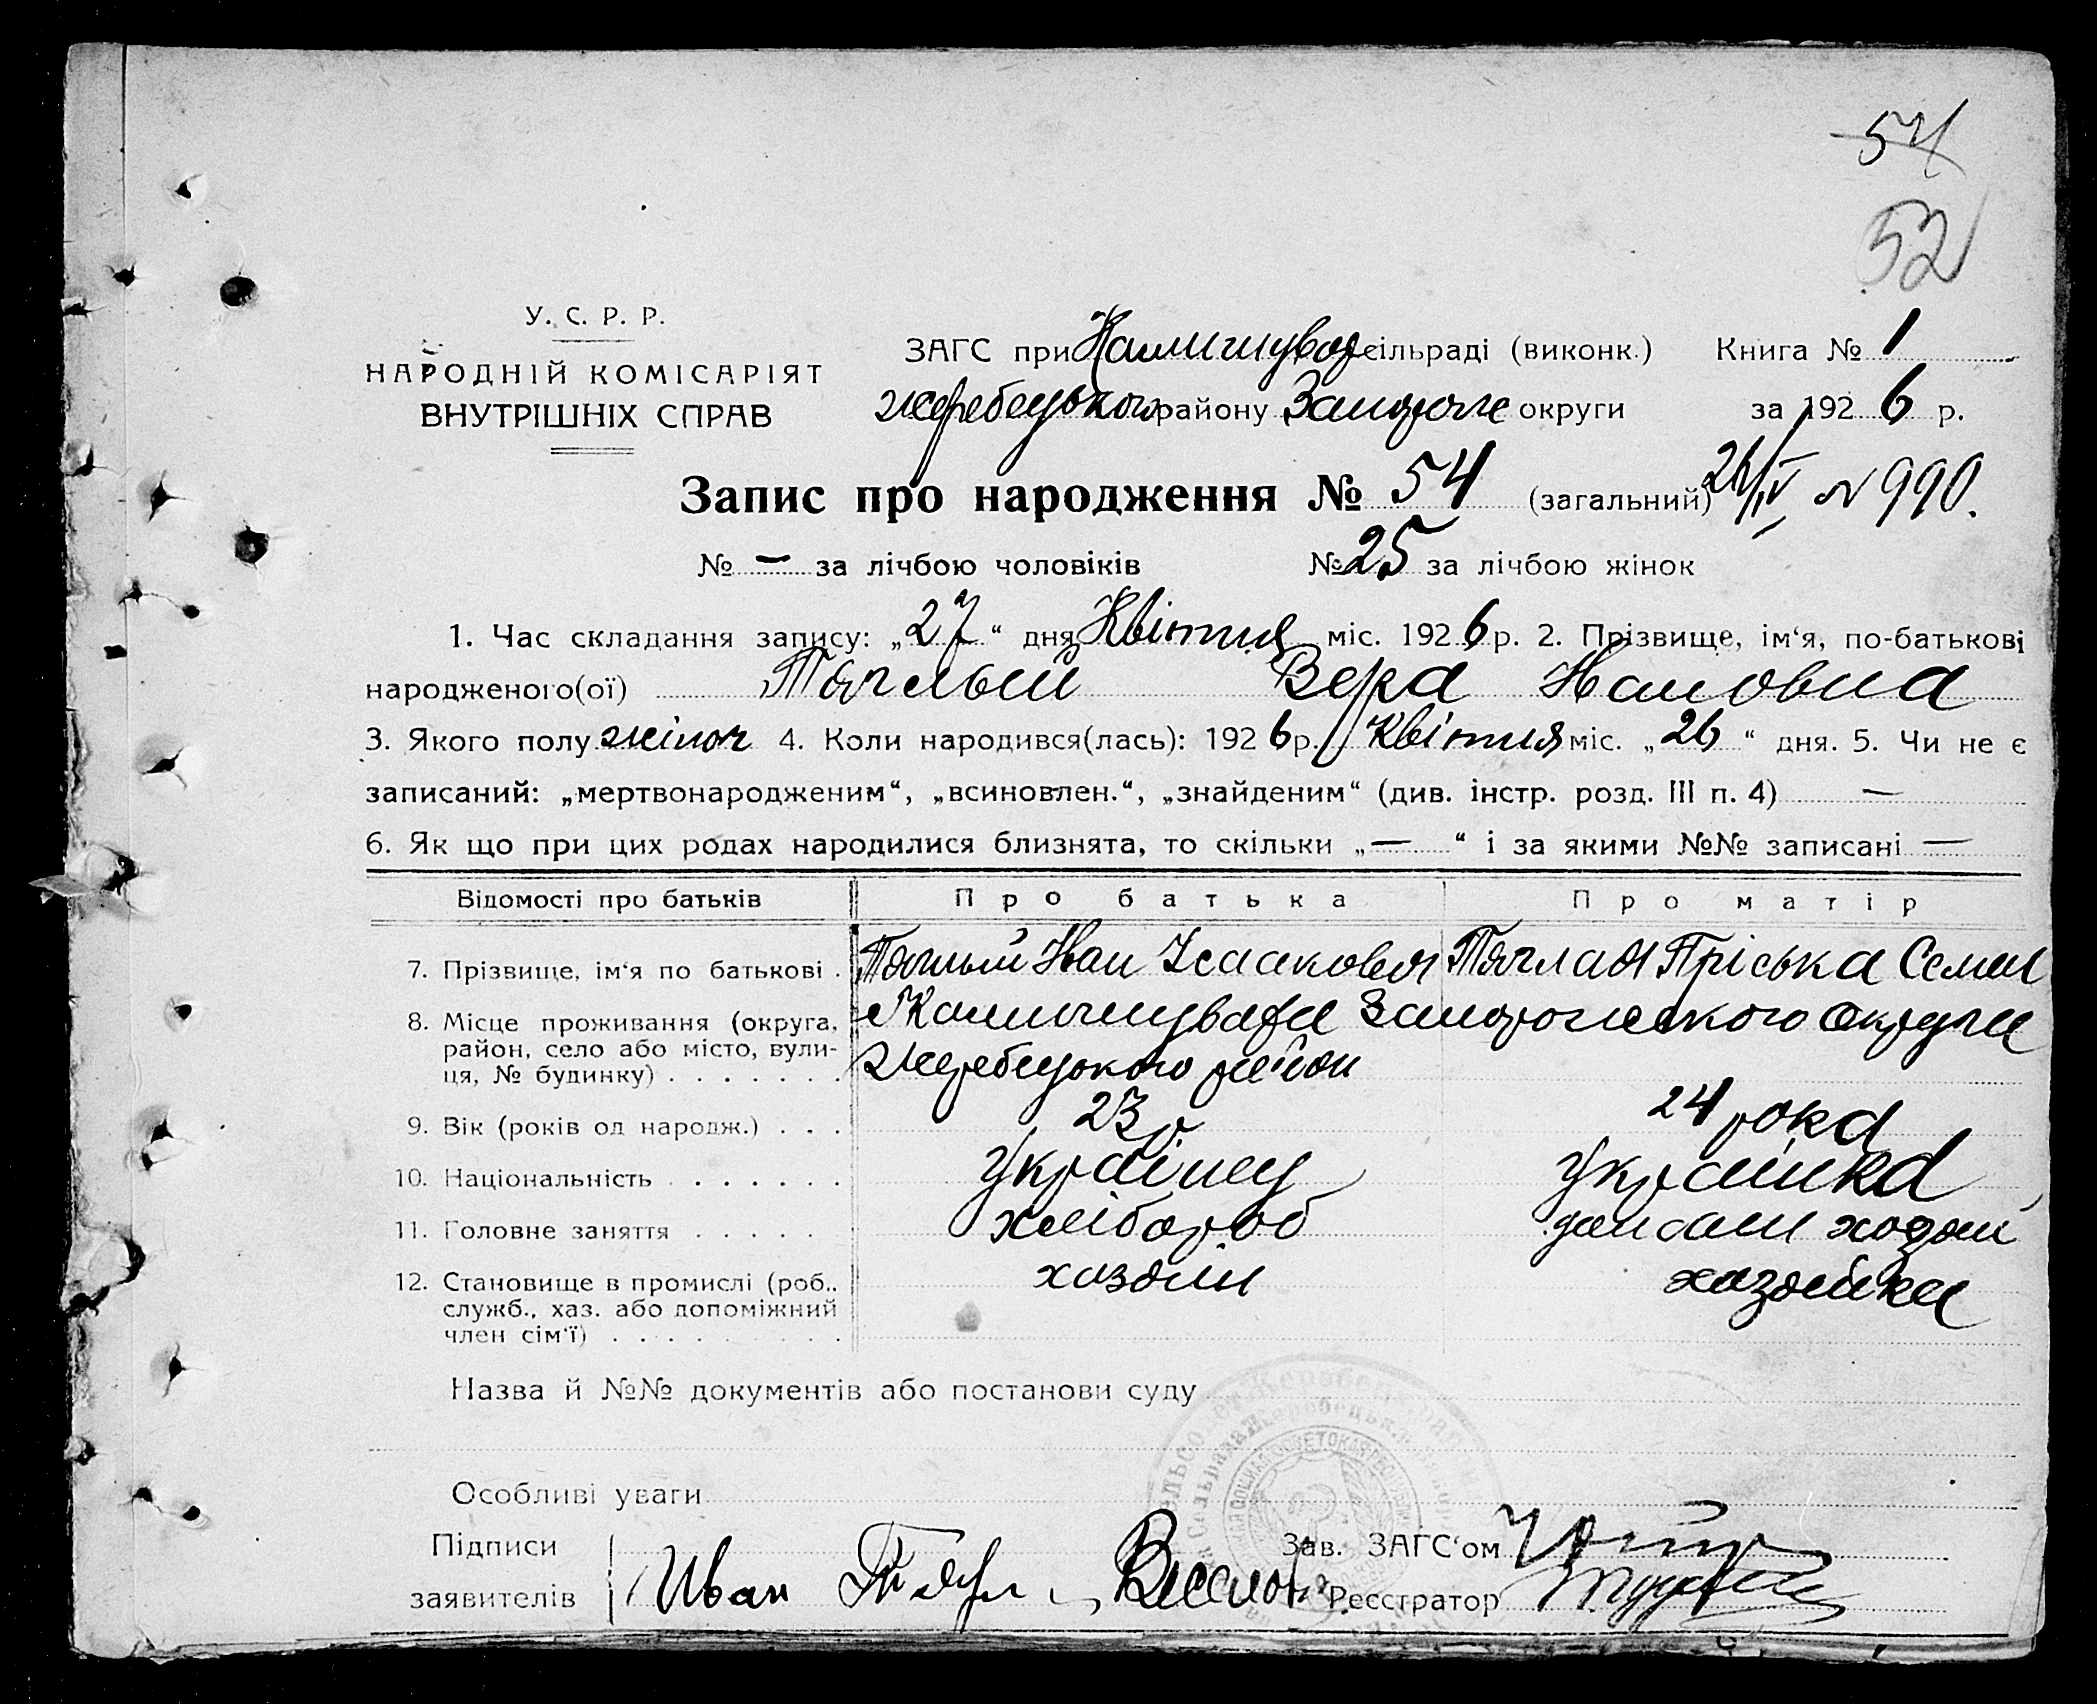 54
52
У. С. Р. Р.
НАРОДНІЙ КОМІСАРІЯТ
ВНУТРІШНІХ СПРАВ
ЗАГС при Камишував сільраді (виконк.) Книга № 1
Жеребецького району Запорож округи за 192 6 р.
Запис про народження № 54 (загальний) 26/IV N 990.
№ — за лічбою чоловіків № 25 за лічбою жінок
1. Час складання запису: „ 27 “ дня Квітня міс. 192 6 р. 2. Прізвище, ім‘я, по-батькові
народженого(ої) Тяглый Вера Ивановна
3. Якого полу жіноч 4. Коли народився(лась): 192 6 р. Квітня міс. „ 26 “ дня. 5. Чи не є
записаний: „мертвонародженим“, „всиновлен.“, „знайденим“ (див. інстр. розд. III п. 4) —
6. Як що при цих родах народилися близнята, то скільки „ — “ і за якими №№ записані —
Відомості про батьків Про батька Про матір
7. Прізвище, ім‘я по батькові . Тяглый Иван Исаакович Тяглая Пріська Семен
8. Місце проживання (округа, Камишувата Запорожского Округа
район, село або місто, вули- Жеребецького район
ця, № будинку) . . . . . . .
9. Вік (років од народж.) . . . 23 р 24 рока
10. Національність . . . . . . . Українец Українка
11. Головне заняття . . . . . хлібороб
12. Становище в промислі (роб., хазяїн хазяйка
служб., хаз. або допоміжний
член сім‘ї) . . . . . . . . .
Назва й №№ документів або постанови суду
Особливі уваги
Підписи Зав. ЗАГС‘ом
заявителів Иван Реєстратор